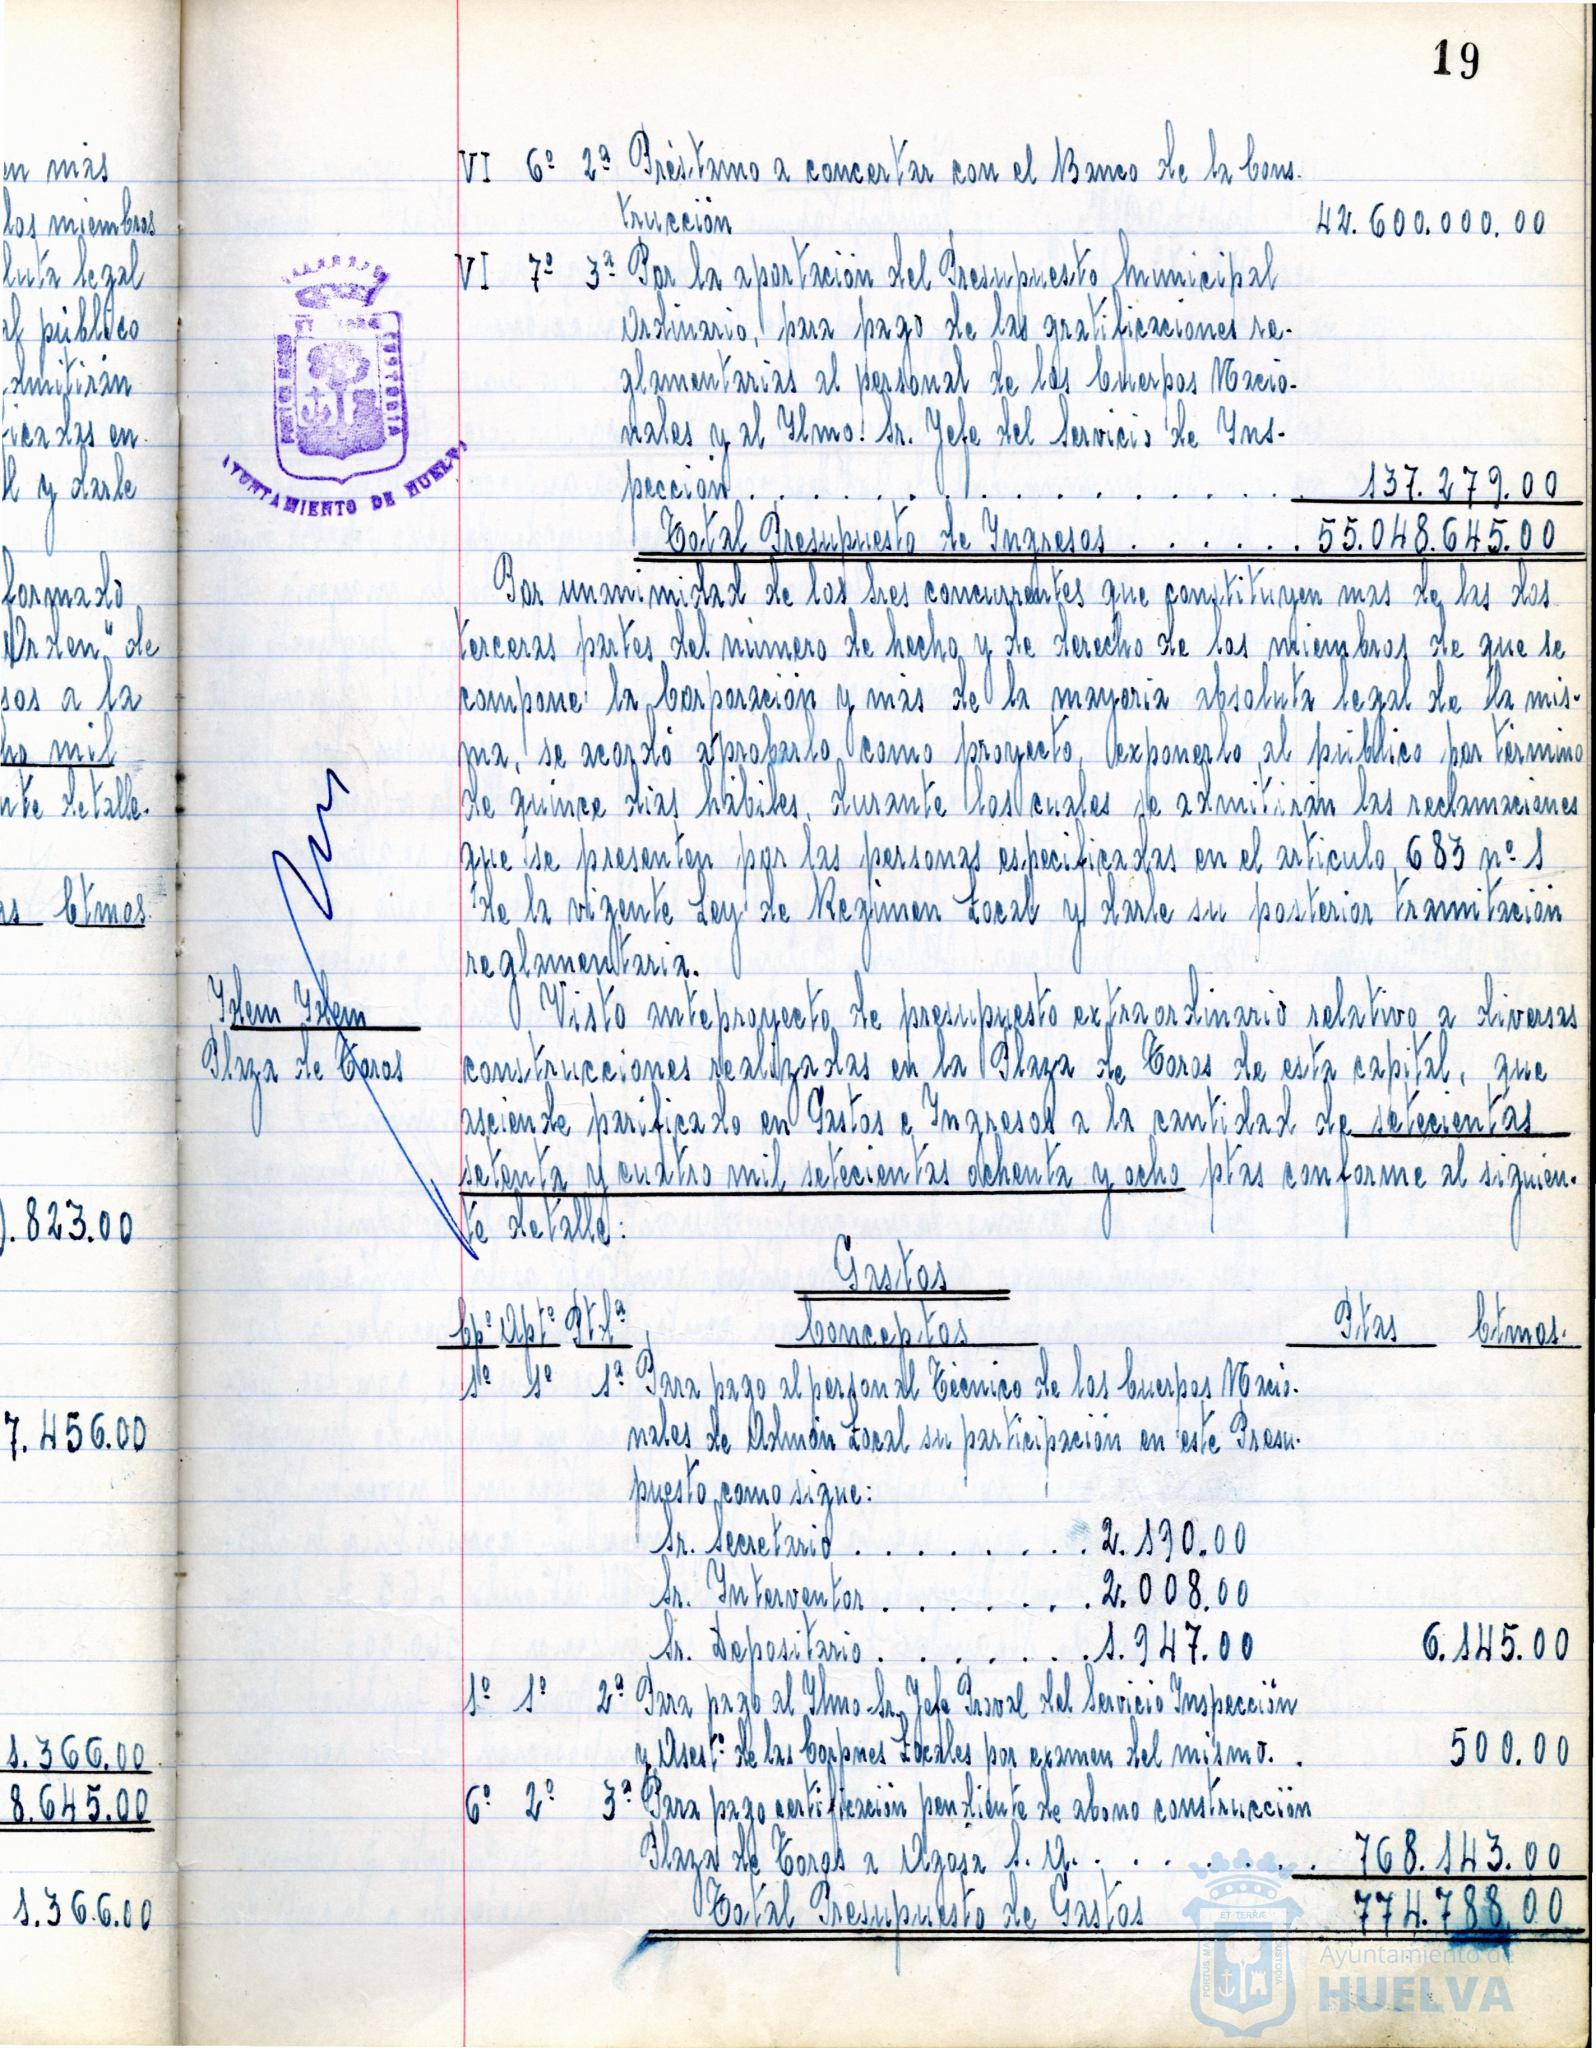 19
en más
los miembros
luta legal
al público
admitirán
ficadas en
l y darle
formado
Orden" de
sos a la
ho mil
nte detalle.
as Ctmos.
.823.00
7.456.00
1.366.00
8.645.00
1.366.00
VI 6º 2ª Préstamo a concertar con el Banco de la Cons-
trucción 42.600.000.00
VI 7º 3ª Por la aportación del Presupuesto Municipal
Ordinario, para pago de las gratificaciones re-
glamentarias al personal de los Cuerpos Nacio-
nales y al Ylmo. Sr. Jefe del Servicio de Yns-
pección . . . . . . . . . . . . . . . . . . 137.279.00
Total Presupuesto de Ingresos . . . . . . 55.048.645.00
Por unanimidad de los sres concurrentes que constituyen mas de las dos
terceras partes del número de hecho y de derecho de los miembros de que se
compone la Corporación y más de la mayoria absoluta legal de la mis-
ma, se acordó aprobarlo como proyecto, exponerlo al público por término
de quince dias hábiles, durante los cuales se admitirán las reclamaciones
que se presenten por las personas especificadas en el articulo 683 nº 1
de la vigente Ley de Regimen Local y darle su posterior tramitación
reglamentaria.
Ydem Ydem
Plaza de Toros
Visto anteproyecto de presupuesto extraordinario relativo a diversas
construcciones realizadas en la Plaza de Toros de esta capital, que
asciende parificado en Gastos e Ingresos a la cantidad de setecientas
setenta y cuatro mil setecientas ochenta y ocho ptas conforme al siguien-
te detalle:
Gastos
Cpº Aptº Ptdª Conceptos Ptas Ctmos.
1º 1º 1ª Para pago al personal Técnico de los Cuerpos Nacio-
nales de Admón Local su participación en este Presu-
puesto como sigue:
Sr. Secretario . . . . . . . . . 2.190.00
Sr. Interventor . . . . . . . . 2.008.00
Sr. Depositario . . . . . . . . 1.947.00 6.145.00
1º 1º 2ª Para pago al Ylmo. Sr. Jefe Proval del Servicio Inspección
y Asestº de las Corpnes Locales por examen del mismo. . 500.00
6º 2º 3ª Para pago certificación pendiente de abono construcción
Plaza de Toros a Agosa S.A. . . . . . . . . 768.143.00
Total Presupuesto de Gastos 774.788.00
AYUNTAMIENTO DE HUELVA
Ayuntamiento de
HUELVA